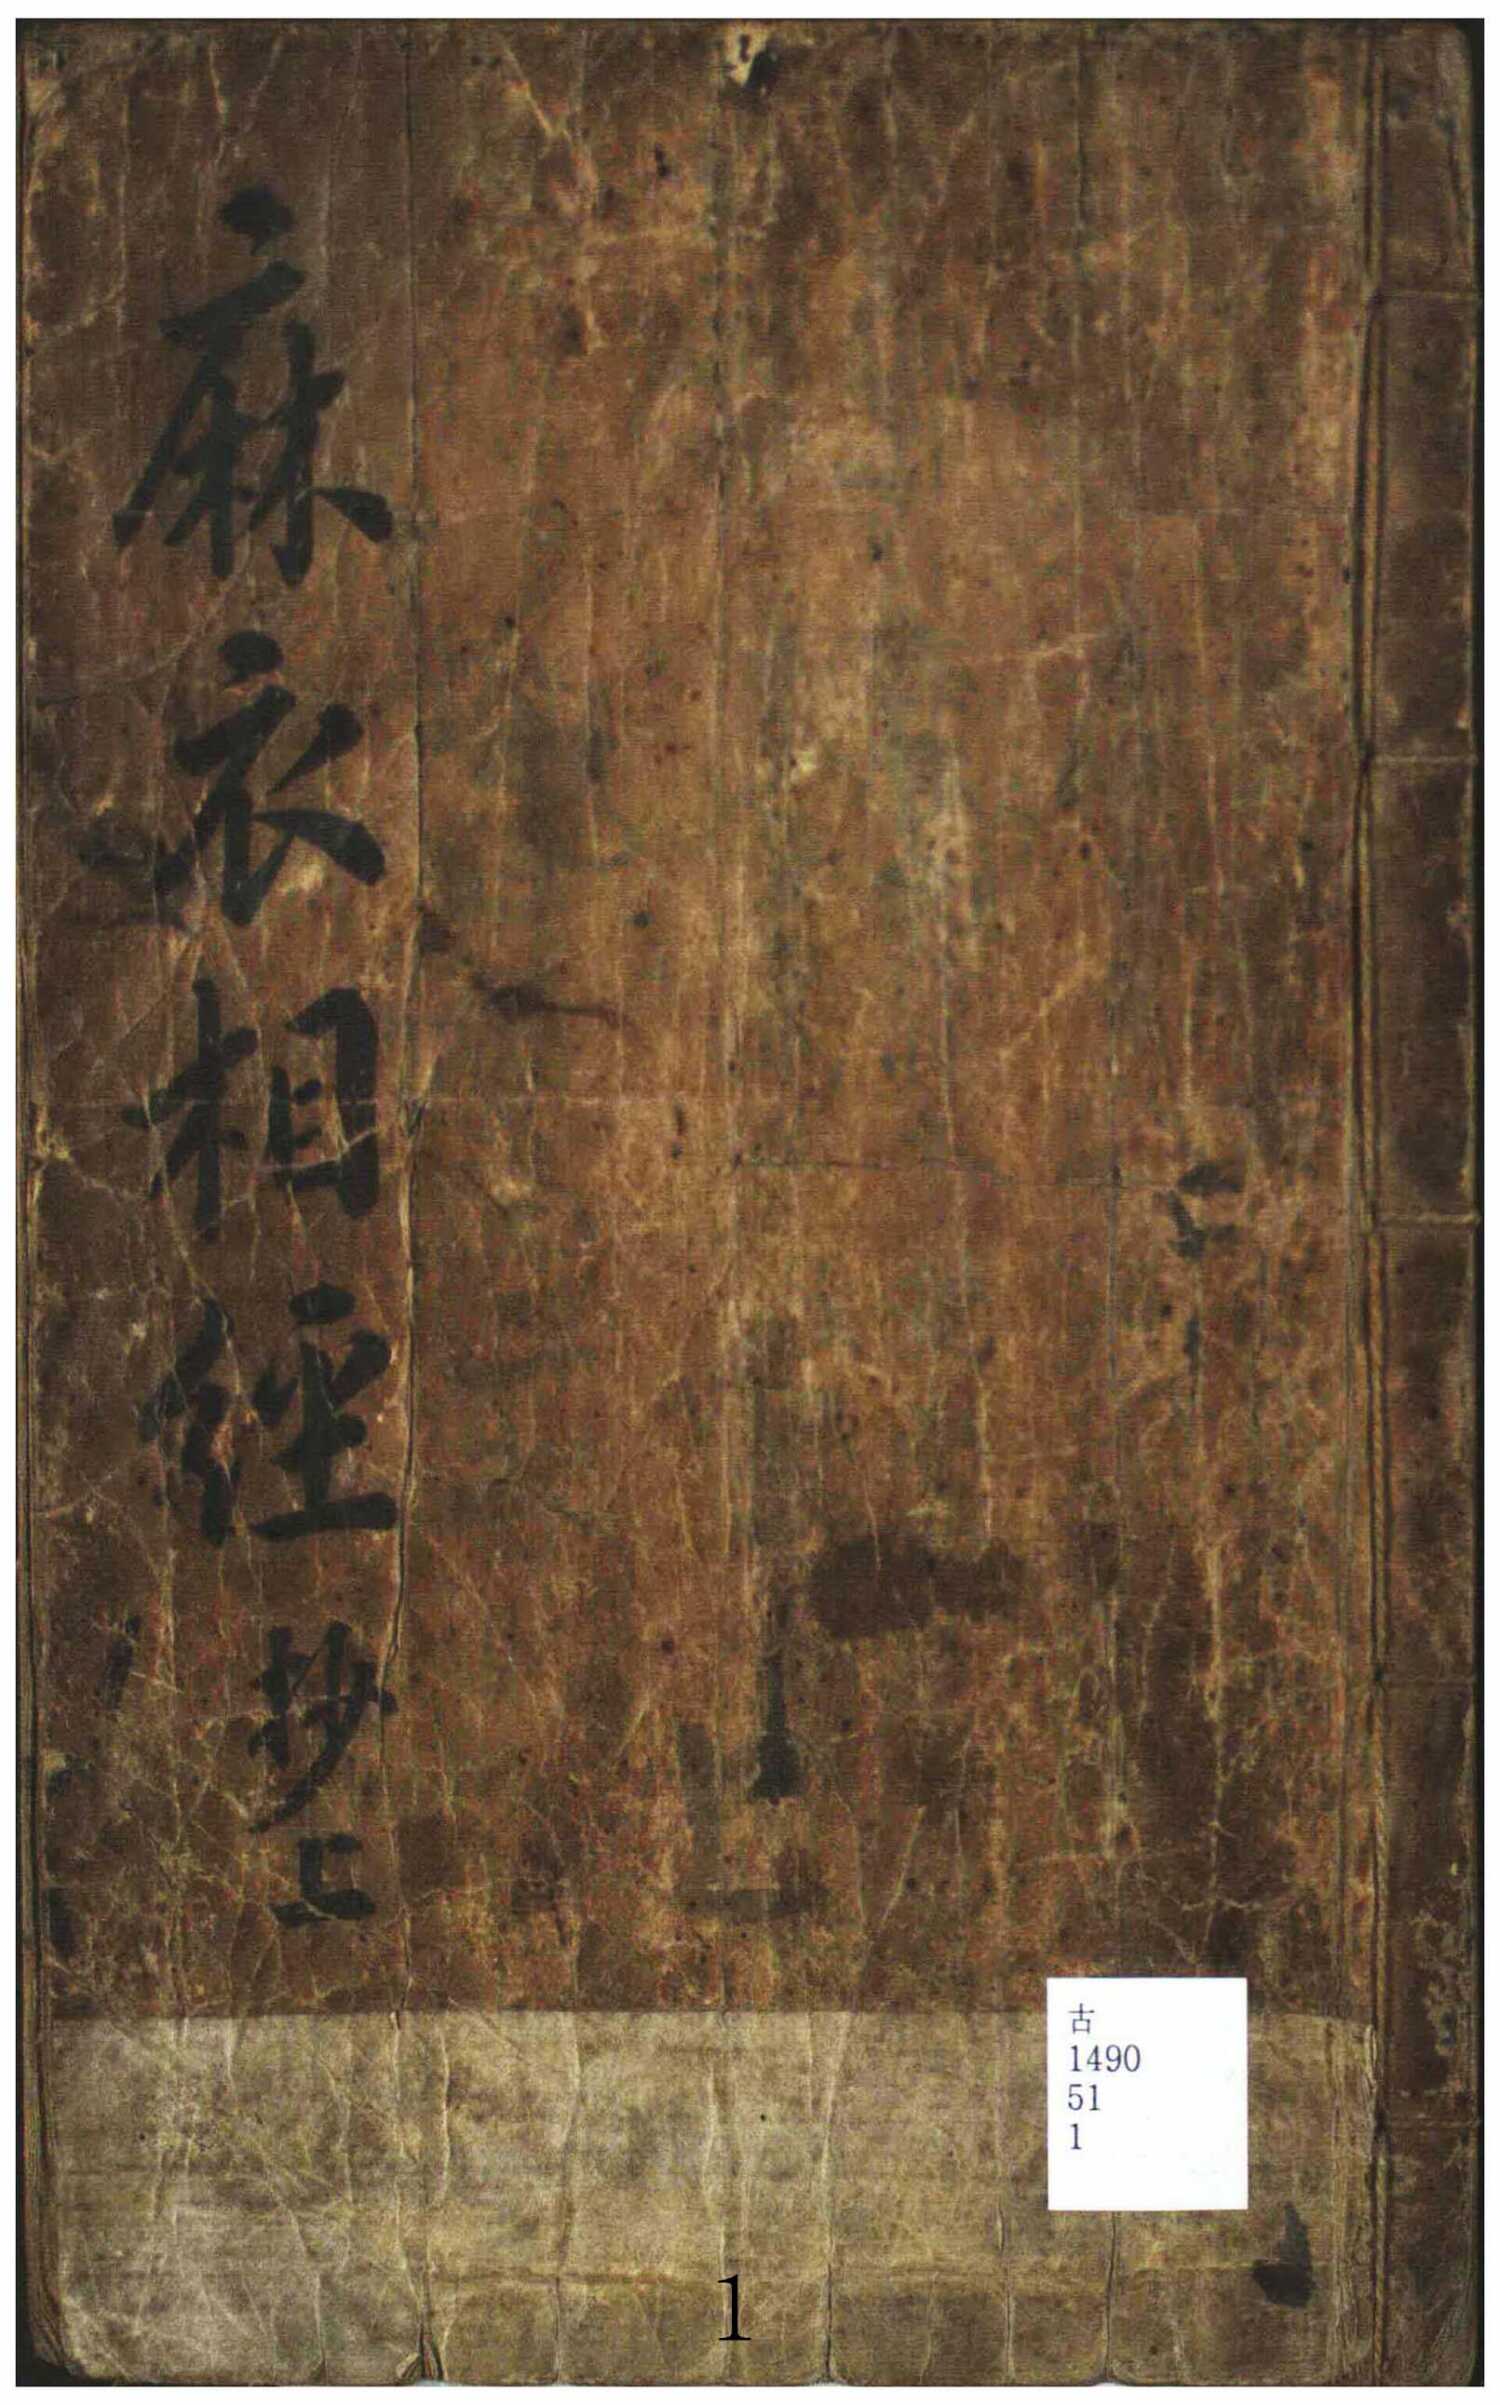 麻衣相經抄上
古
1490
51
1
1